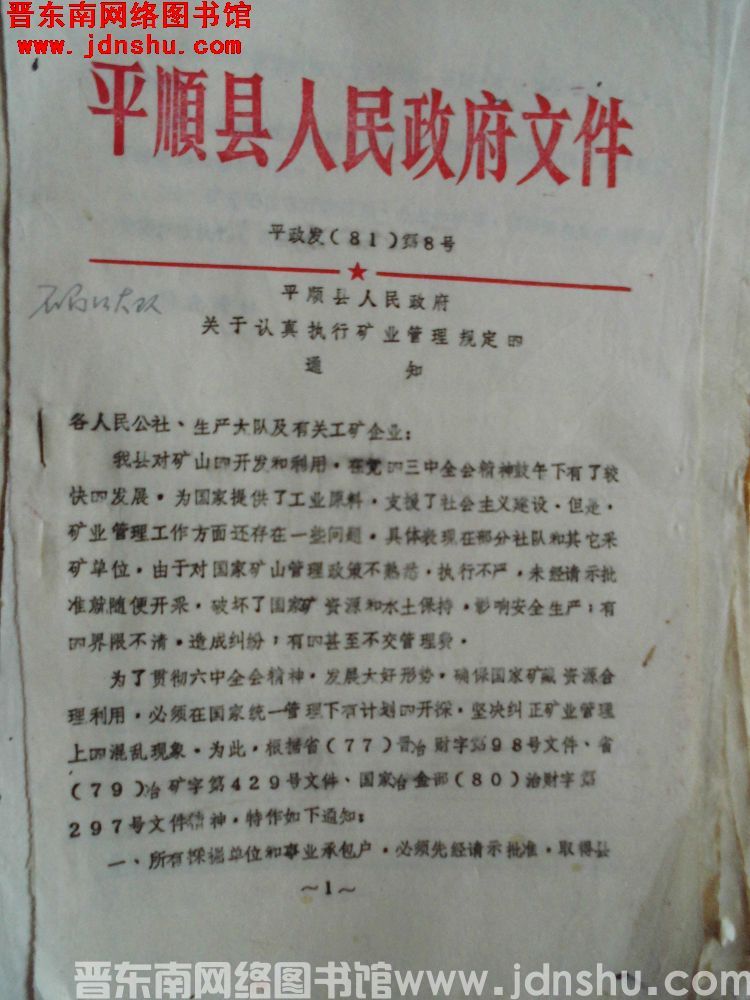 晋东南网络图书馆
www.jdnshu.com
平順县人民政府文件
平政发(81)第8号
平顺县人民政府
关于认真执行矿业管理规定的
通知
各人民公社、生产大队及有关工矿企业:
我县对矿山的开发和利用,在党的三中全会精神鼓午下有了较
快的发展。为国家提供了工业原料,支援了社会主义建设。但是,
矿业管理工作方面还存在一些问题,具体表现在部分社队和其它采
矿单位,由于对国家矿山管理政策不熟悉,执行不严,未经请示批
准就随便开采,破坏了国家矿资源和水土保持,影响安全生产;有
的界限不清,造成纠纷;有的甚至不交管理费。
为了贯彻六中全会精神,发展大好形势,确保国家矿藏资源合
理利用,必须在国家统一管理下有计划的开探,坚决纠正矿业管理
上的混乱现象。为此,根据省(77)晋冶财字第98号文件、省
(79)冶矿字第429号文件、国家冶金部(80)冶财字第
297号文件精神,特作如下通知:
一、所有探掘单位和事业承包户,必须先经请示批准,取得县
~1~
晋东南网络图书馆www.jdnshu.com